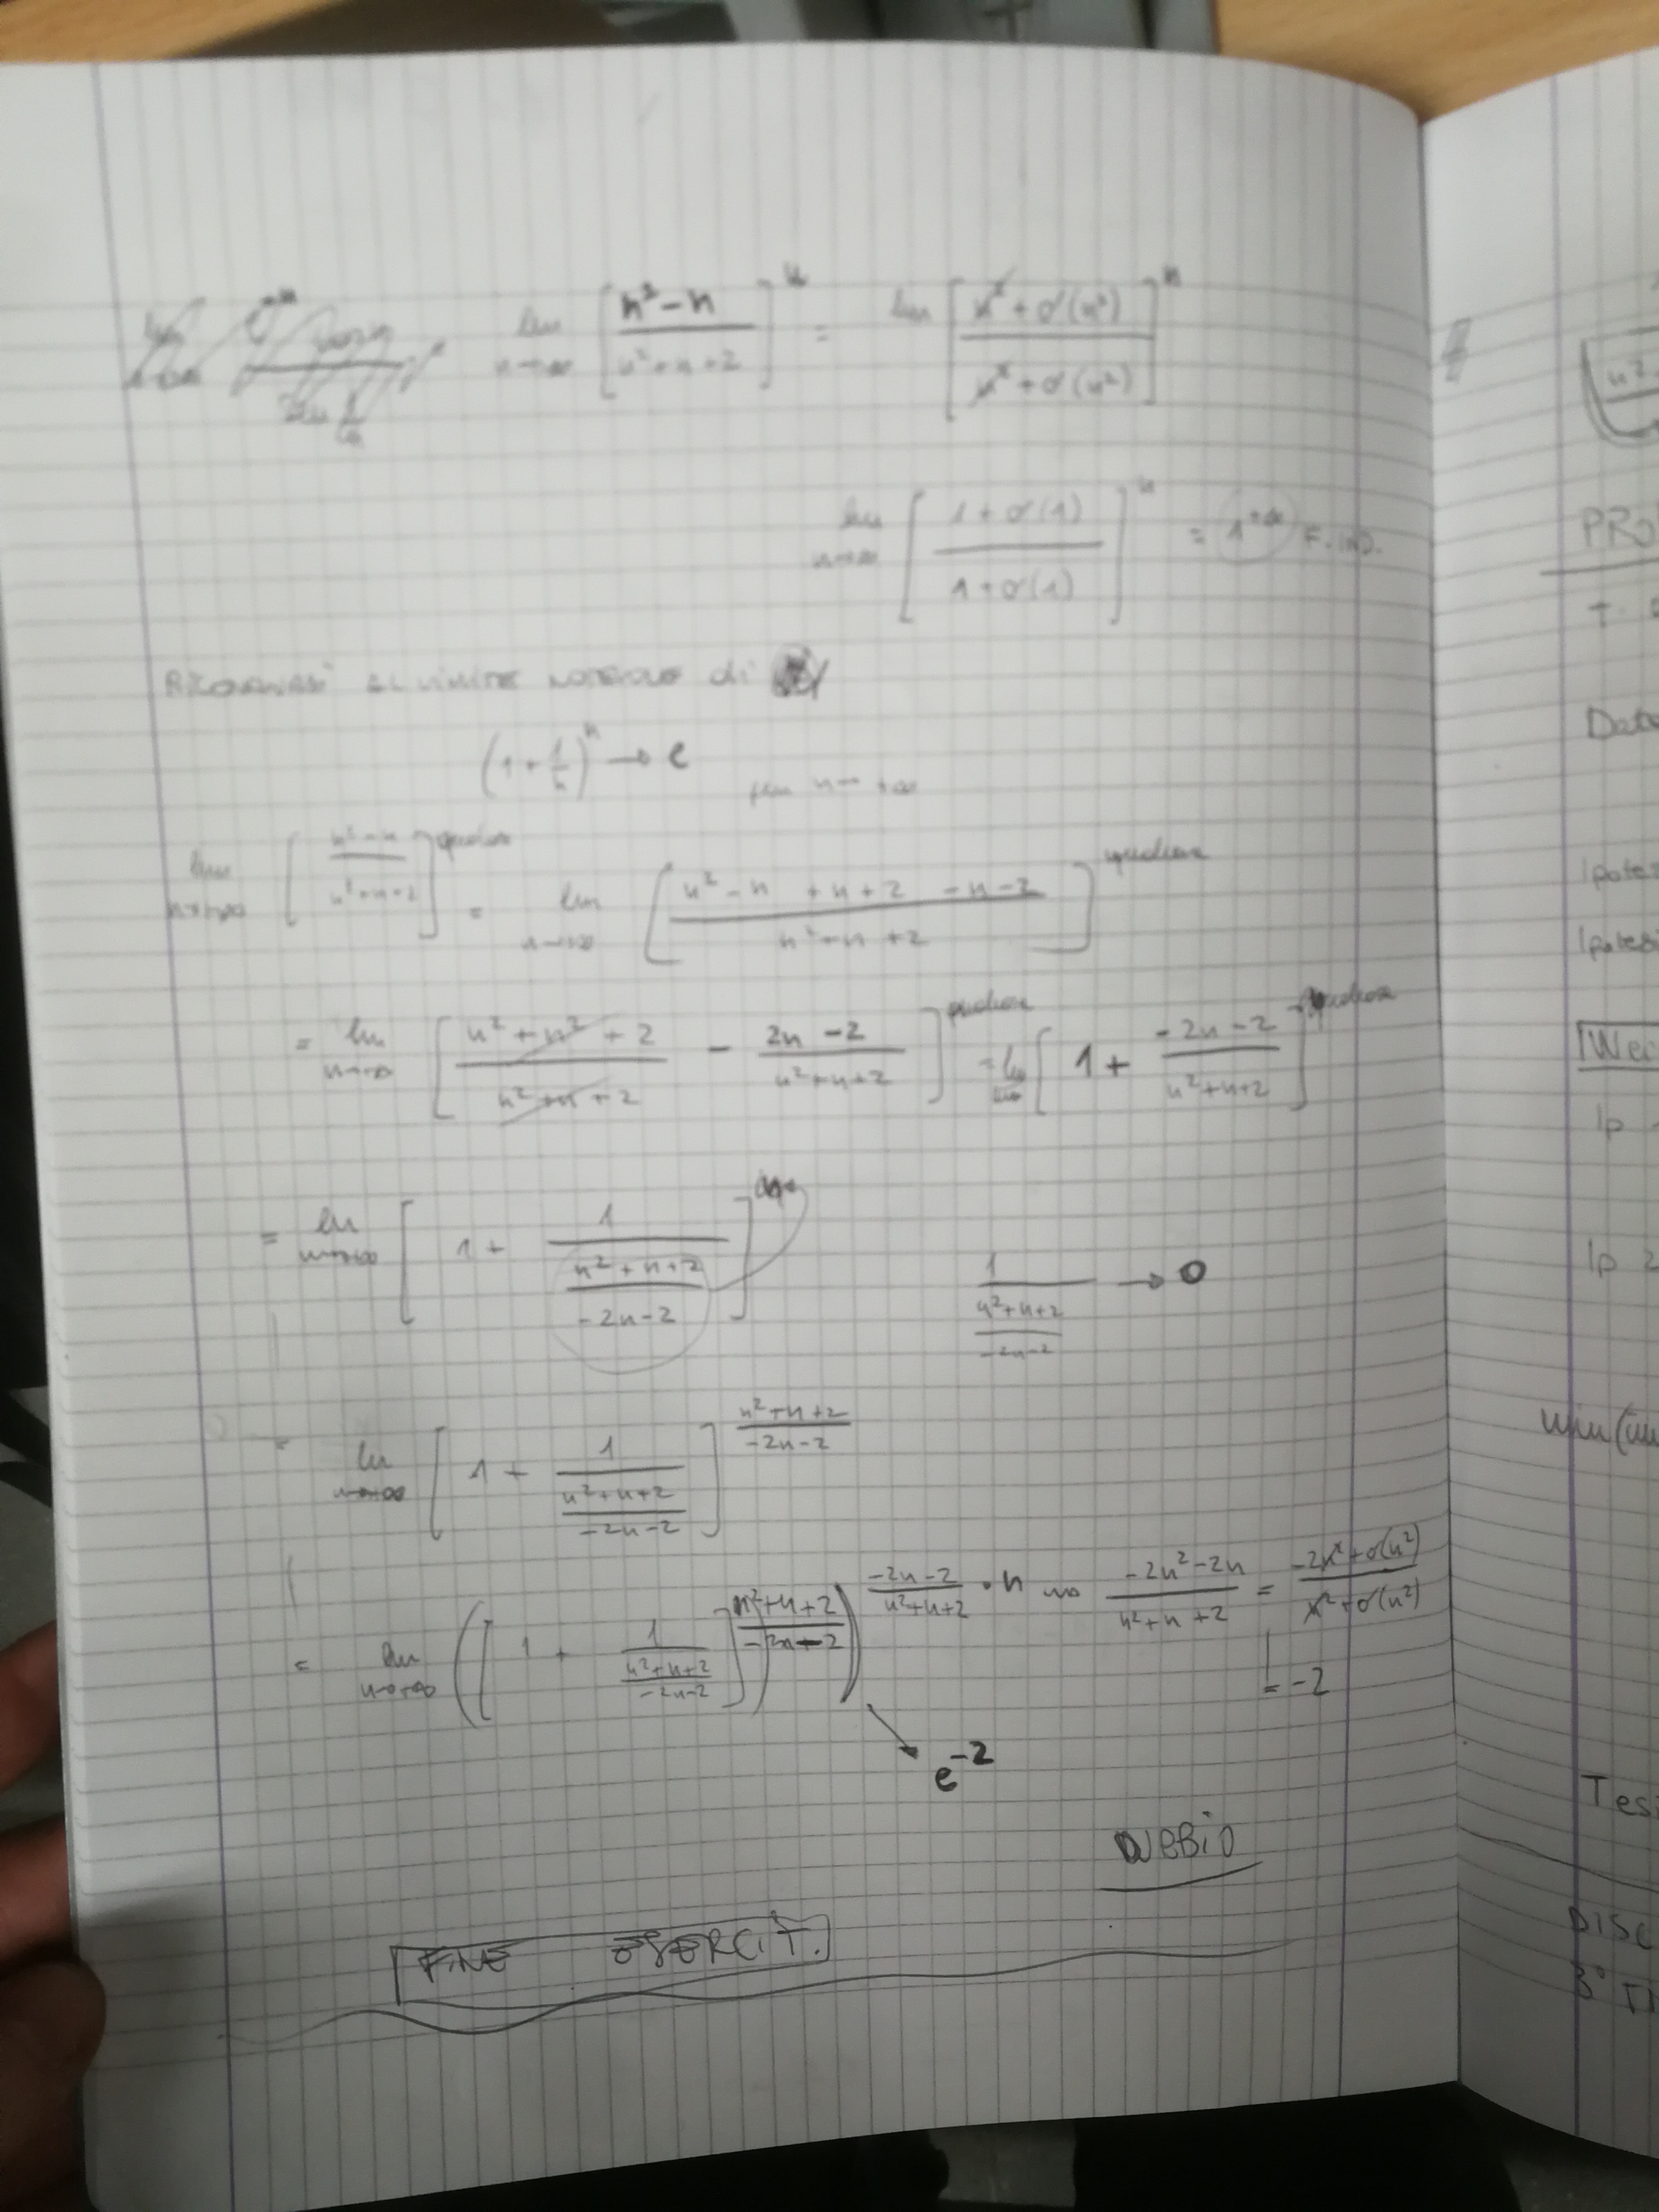 lim n→∞ [ (n² - n) / (n² + n + 2) ]ⁿ = lim [ (n² + o(n²)) / (n² + o(n²)) ]ⁿ
lim n→∞ [ (1 + o(1)) / (1 + o(1)) ]ⁿ = 1^{+∞} F. IND.
AL LIMITE NOTEVOLE di
(1 + 1/n)ⁿ → e per n → +∞
lim n→+∞ [ (n² - n) / (n² + n + 2) ]^{qualcosa} = lim n→+∞ [ (n² - n + n + 2 - n - 2) / (n² + n + 2) ]^{qualcosa}
= lim n→+∞ [ (n² + n² + 2) / (n² + n + 2) - (2n - 2) / (n² + n + 2) ]^{qualcosa} = lim [ 1 + (-2n - 2) / (n² + n + 2) ]^{qualcosa}
= lim n→+∞ [ 1 + 1 / ((n² + n + 2) / (-2n - 2)) ] 1 / ((n² + n + 2) / (-2n - 2)) → 0
= lim n→+∞ [ 1 + 1 / ((n² + n + 2) / (-2n - 2)) ]^{(n² + n + 2) / (-2n - 2)}
= lim n→+∞ ([ 1 + 1 / ((n² + n + 2) / (-2n - 2)) ]^{(n² + n + 2) / (-2n - 2)})^{(-2n - 2) / (n² + n + 2) · n} (-2n² - 2n) / (n² + n + 2) = (-2n² + o(n²)) / (n² + o(n²))
= -2
e⁻²
FINE ESERCIT.
PRO
T.
Dato
Ip
Ip 2
Tes
DISC
3°